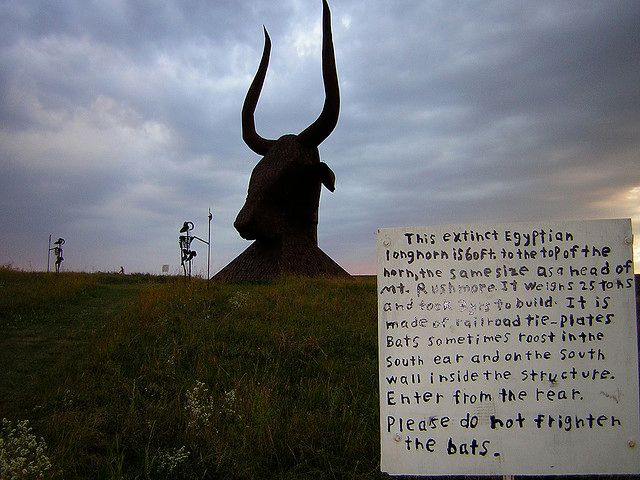 This extinct Egyptian
longhorn is 60ft. to the top of the
horn, the same size as a head of
Mt. Rushmore. It weighs 25 tons
and took 3yrs to build. It is
made of railroad tie-plates
Bats sometimes roost in the
South ear and on the South
wall inside the structure.
Enter from the rear.
Please do not frighten
the bats.